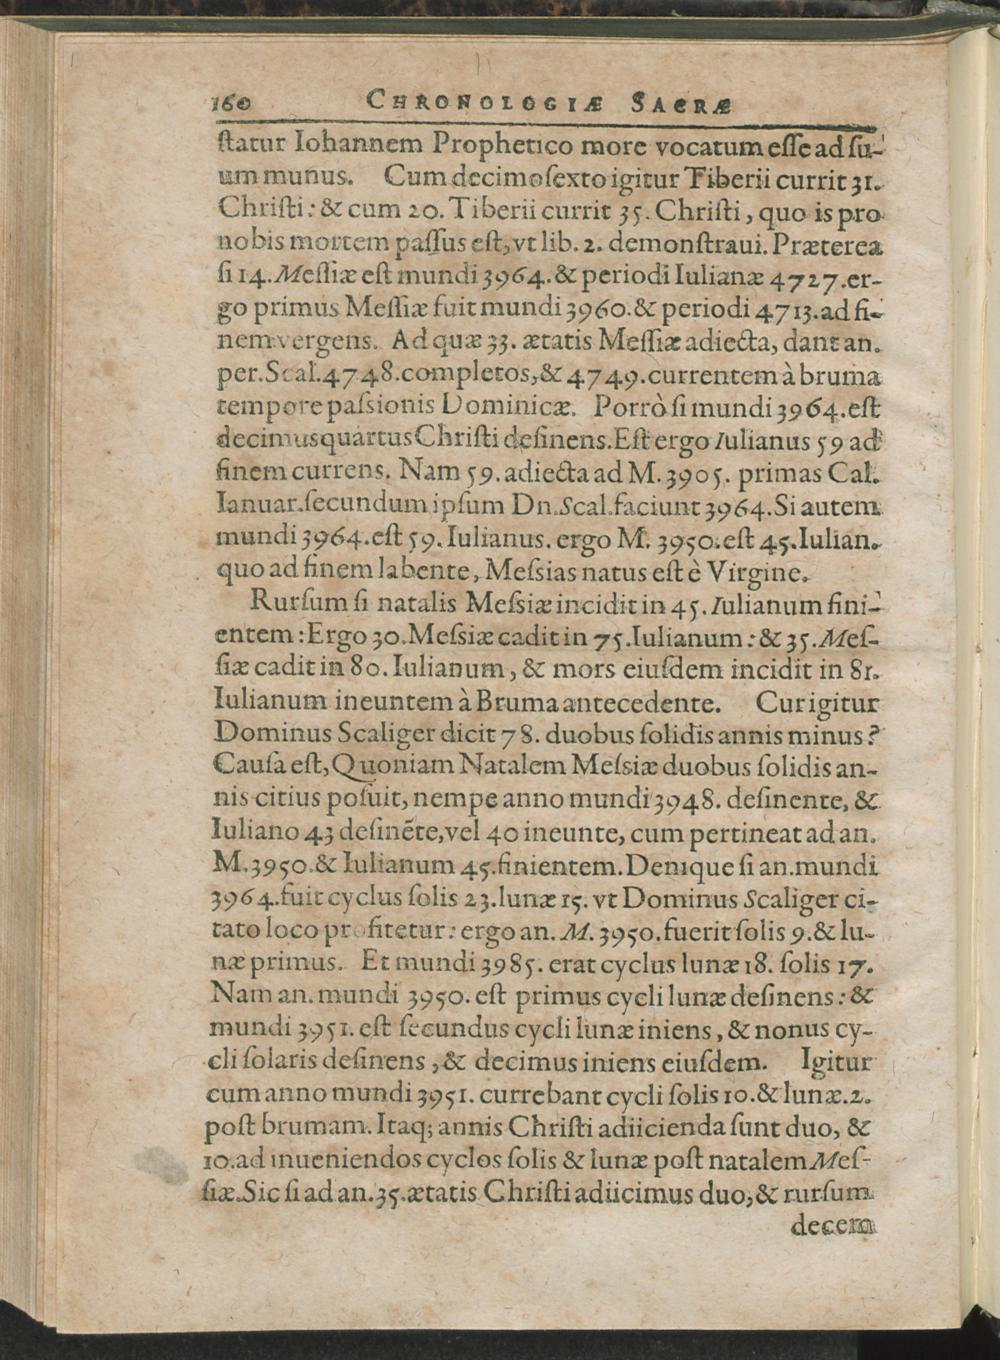 160 CHRONOLOGIÆ SACRÆ
ſtatur Iohannem Prophetico more vocatum eſſe ad ſu-
um munus. Cum decimoſexto igitur Tiberii currit 31.
Chriſti: & cum 20. Tiberii currit 35. Chriſti, quo is pro
nobis mortem paſſus eſt, vt lib. 2. demonſtraui. Præterea
ſi 14. Meſſiæ eſt mundi 3964. & periodi Iulianæ 4727. er-
go primus Meſſiæ fuit mundi 3960. & periodi 4713. ad fi-
nem vergens. Ad quæ 33. ætatis Meſſiæ adiecta, dant an.
per. Scal. 4748. completos, & 4749. currentem à bruma
tempore paſsionis Dominicæ. Porrò ſi mundi 3964. eſt
decimusquartus Chriſti deſinens. Eſt ergo Iulianus 59 ad
finem currens. Nam 59. adiecta ad M. 3905. primas Cal.
Ianuar. ſecundum ipſum Dn. Scal. faciunt 3964. Si autem
mundi 3964. eſt 59. Iulianus. ergo M. 3950. eſt 45. Iulian.
quo ad finem labente, Meſsias natus eſt è Virgine.
Rurſum ſi natalis Meſsiæ incidit in 45. Iulianum fini-
entem: Ergo 30. Meſsiæ cadit in 75. Iulianum: & 35. Meſ-
ſiæ cadit in 80. Iulianum, & mors eiuſdem incidit in 81.
Iulianum ineuntem à Bruma antecedente. Cur igitur
Dominus Scaliger dicit 78. duobus ſolidis annis minus?
Cauſa eſt, Quoniam Natalem Meſsiæ duobus ſolidis an-
nis citius poſuit, nempe anno mundi 3948. deſinente, &
Iuliano 43 deſinẽte, vel 40 ineunte, cum pertineat ad an.
M. 3950. & Iulianum 45. finientem. Denique ſi an. mundi
3964. fuit cyclus ſolis 23. lunæ 15. vt Dominus Scaliger ci-
tato loco profitetur: ergo an. M. 3950. fuerit ſolis 9. & lu-
næ primus. Et mundi 3985. erat cyclus lunæ 18. ſolis 17.
Nam an. mundi 3950. eſt primus cycli lunæ deſinens: &
mundi 3951. eſt ſecundus cycli lunæ iniens, & nonus cy-
cli ſolaris deſinens, & decimus iniens eiuſdem. Igitur
cum anno mundi 3951. currebant cycli ſolis 10. & lunæ. 2.
poſt brumam. Itaq; annis Chriſti adiicienda ſunt duo, &
10. ad inueniendos cyclos ſolis & lunæ poſt natalem Meſ-
ſiæ. Sic ſi ad an. 35. ætatis Chriſti adiicimus duo, & rurſum
decem